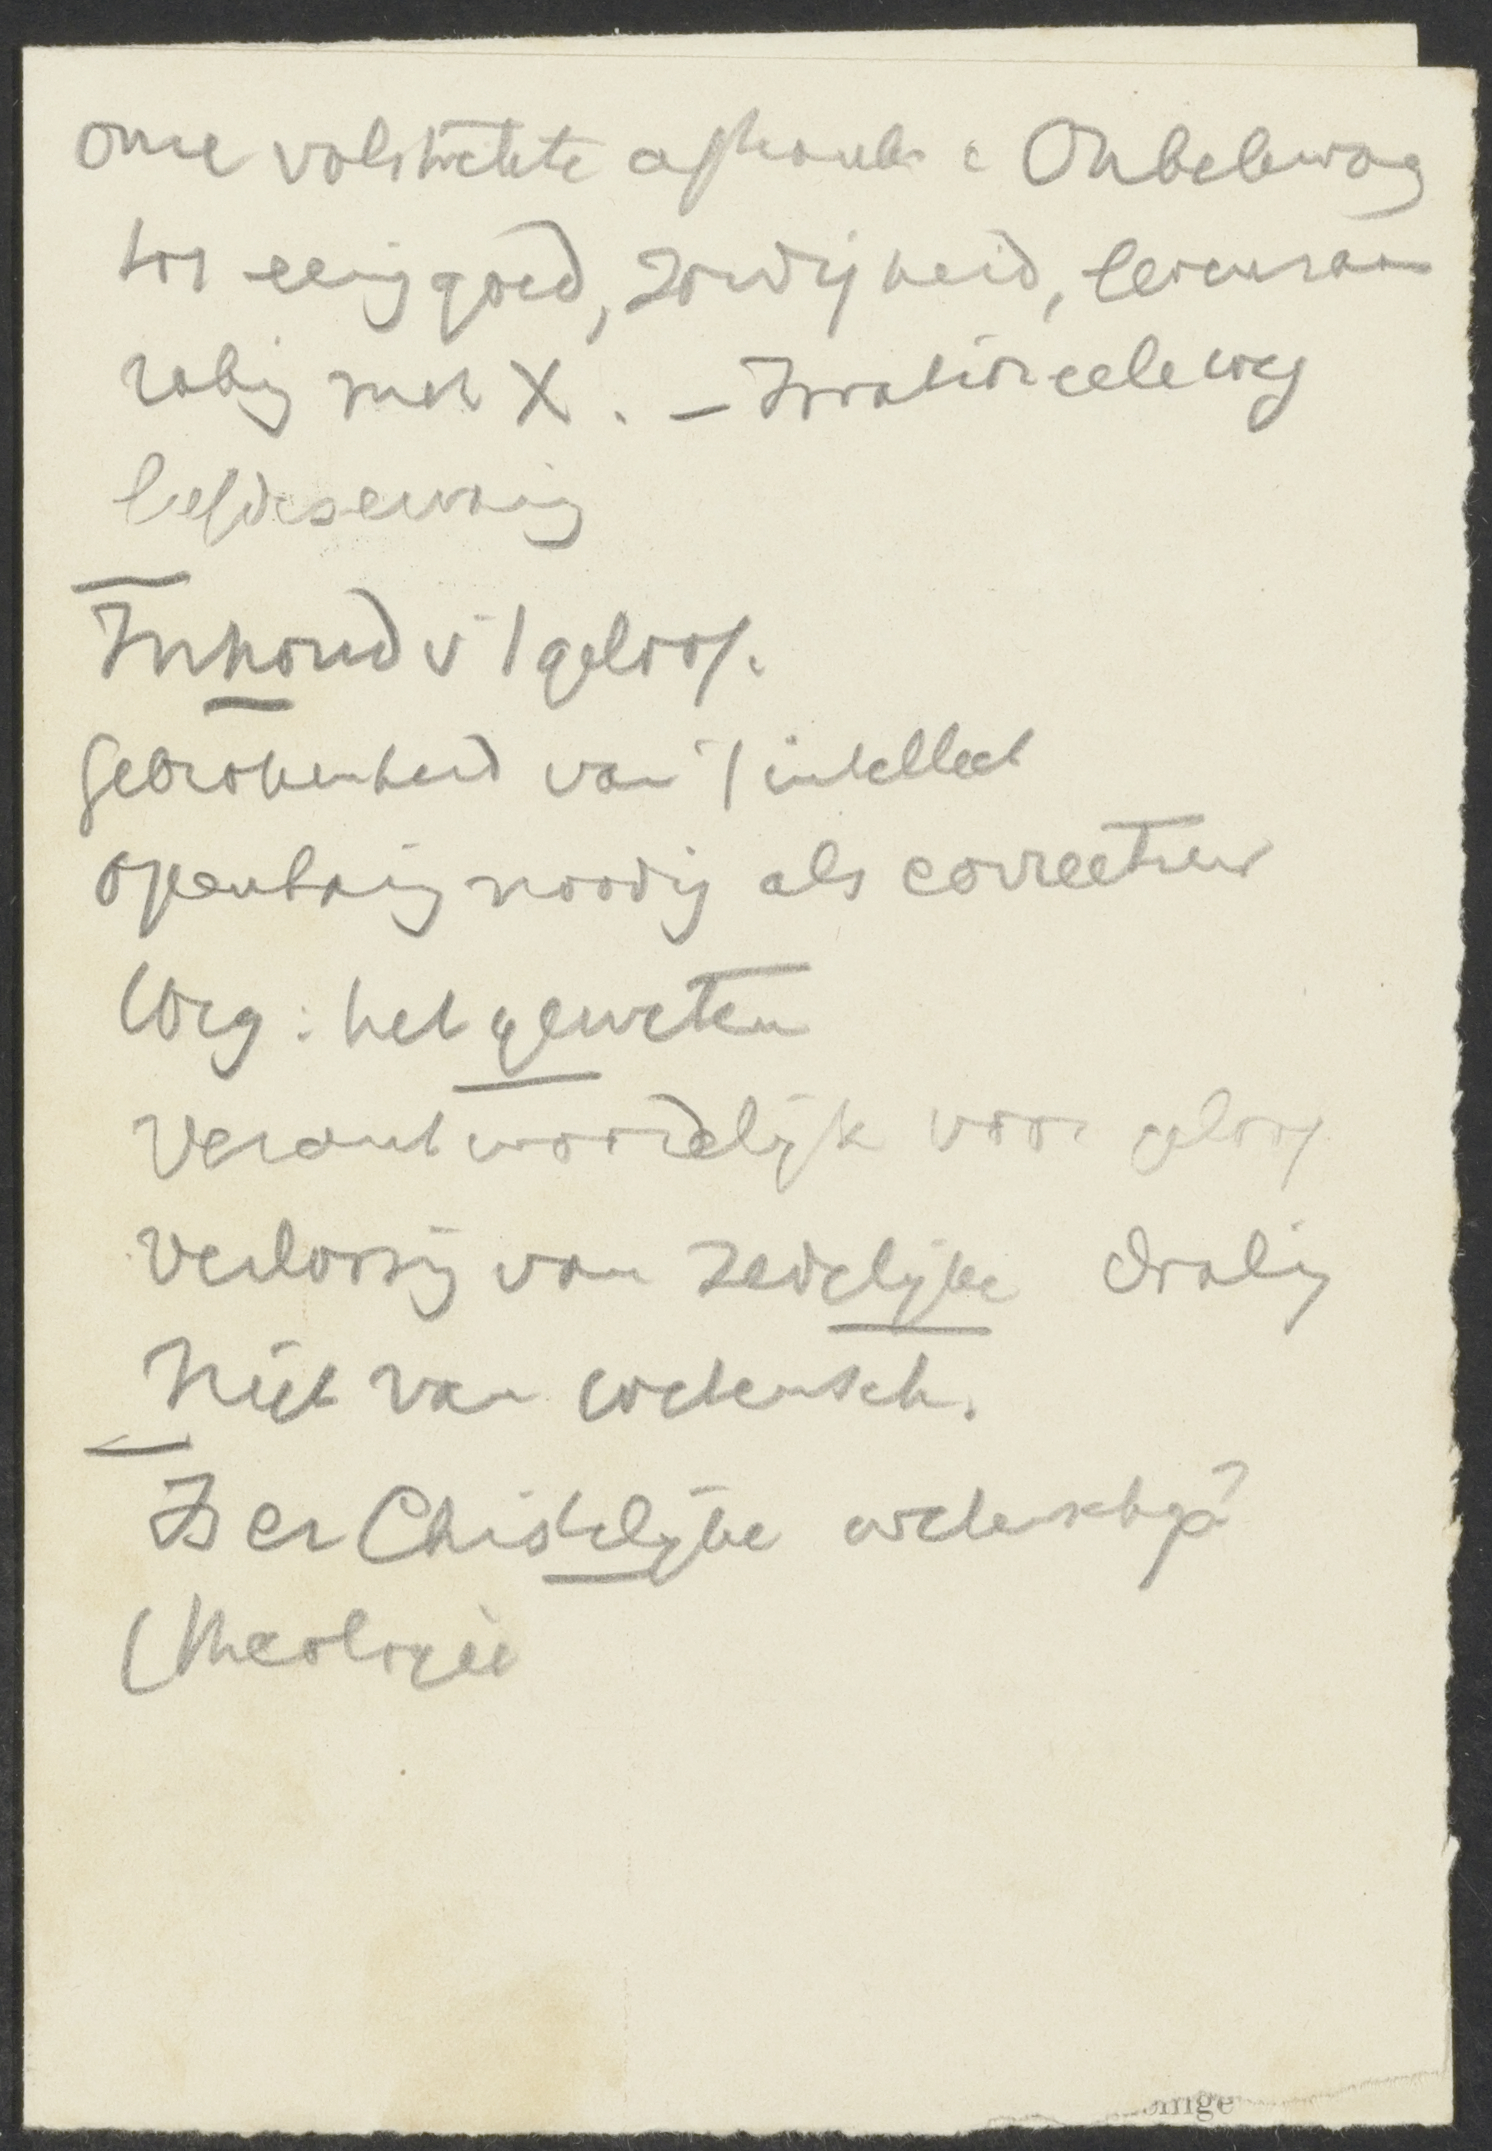 onze volstrekte afhank. : Onbekwaam
tot eenig goed, zondigheid, levens
zalig met X. – Irrationeele weg
liefdeservaring
Inhoud v 't geloof.
Gebrokenheid van 't intellect
openbaring noodig als correctuur
Weg : het geweten
Verantwoordelijk voor geloof
Verlossing van zedelijke dwaling
Niet van wetensch.
Is er Christelijke wetenschap?
(theologie
inge